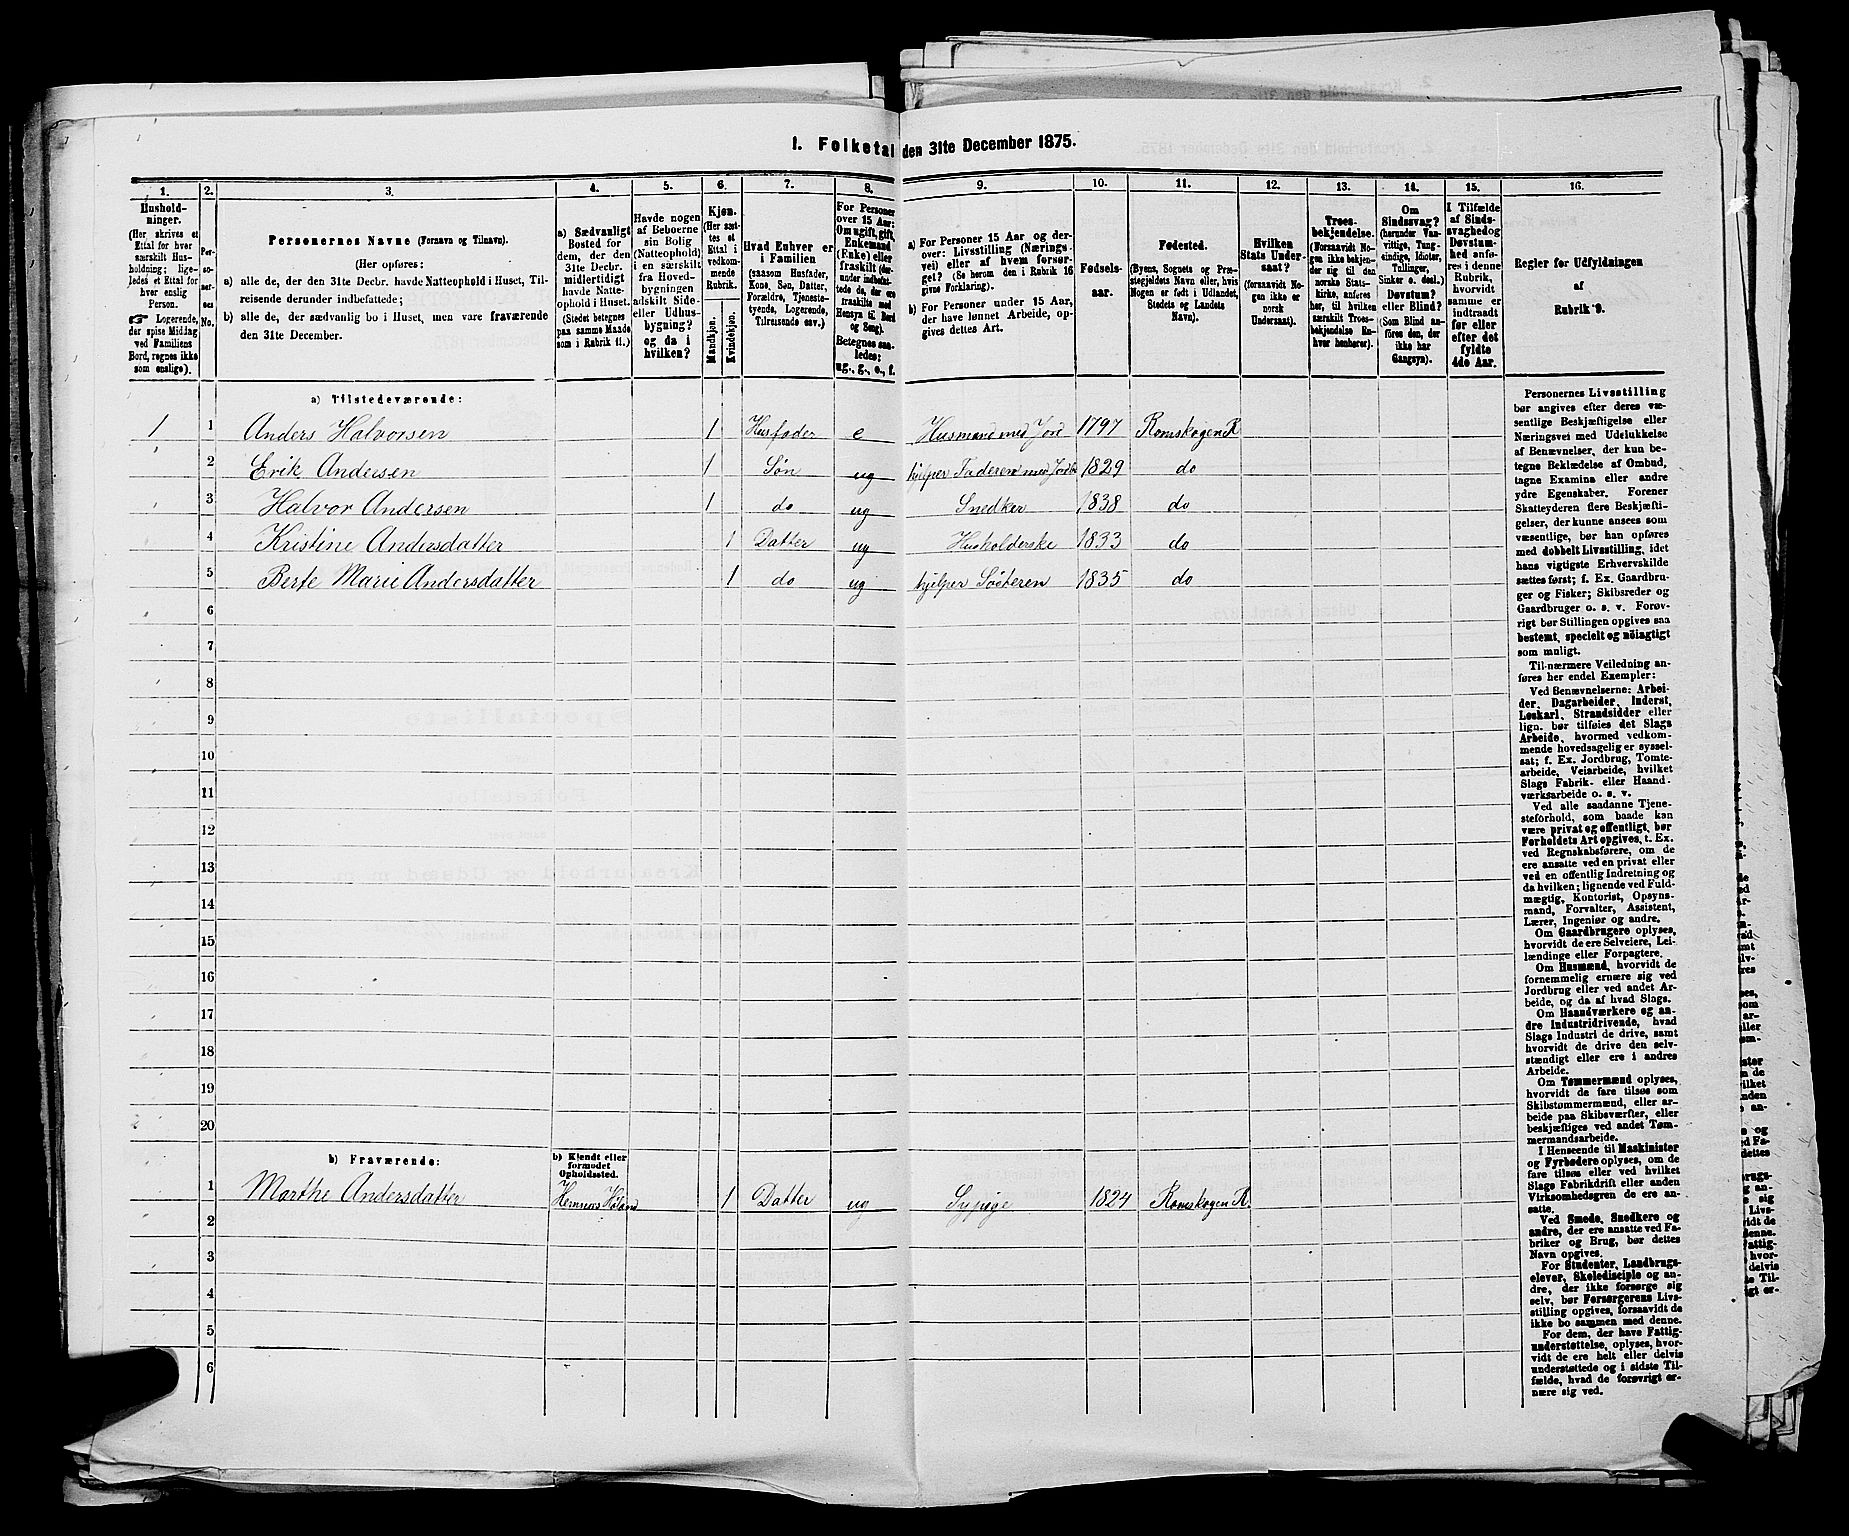 1. Folketal den 31te December 1875.
1.
Husholdninger.
(Her skrives et
Ettal for hver
særskilt Husholdning;
ligeledes et Ettal
for hver enslig
Person.
☞ Logerende,
der spise Middag
ved Familiens
Bord, regnes ikke
som enslige).
2.
Personernes No.
3.
Personernes Navne (Fornavn og Tilnavn).
(Her opføres:
a) alle de, der den 31te Decbr. havde Natteophold i Huset, Tilreisende derunder indbefattede;
b) alle de, der sædvanlig bo i Huset, men vare fraværende
den 31te December.
4.
a) Sædvanligt
Bosted for
dem, der den
31te Decbr.
midlertidigt
havde Natteophold
i Huset.
(Stedet betegnes
paa samme Maade
som i Rubrik 11.)
5.
Havde nogen
af Beboerne
sin Bolig
(Natteophold)
i en særskilt
fra Hovedbygningen
adskilt Side-
eller Udhusbygning?
og da i
hvilken?
6.
Kjøn.
(Her sættes et
Ettal i
vedkommende
Rubrik.
Mandkjøn.
Kvindekjøn.
7.
Hvad Enhver er
i Familien
(saasom Husfader,
Kone, Søn, Datter,
Forældre, Tjenestetyende,
Logerende,
Tilreisende osv.)
8.
For Personer
over 15 Aar:
Om ugift, gift,
Enkemand
(Enke) eller
fraskilt (derunder
indbefattede de, der ere
fraskilte med
Hensyn til Bord
og Seng).
Betegnes saaledes:
ug., g., e., f.
9.
a) For Personer 15 Aar og derover:
Livsstilling (Næringsvei)
eller af hvem forsørget?
(Se herom den i Rubrik 16
givne Forklaring).
b) For Personer under 15 Aar,
der have lønnet Arbeide, opgives
dettes Art.
10.
Fødselsaar.
11.
Fødested.
(Byens, Sognets og Præstegjeldets
Navn eller, hvis
Nogen er født i Udlandet,
Stedets og Landets
Navn).
12.
Hvilken
Stats Undersaat?
(forsaavidt Nogen
ikke er
norsk
Undersaat).
13.
Troesbekjendelse.
(Forsaavidt Nogen
ikke bekjender
sig til den
norske Statskirke,
anføres
her, til hvilken
særskilt Troesbekjendelse
Enhver henhører).
14.
Om
Sindssvag?
(herunder Vanvittige,
Tungsindige, Idioter,
Tillinger,
Sinker o. desl.)
Døvstum?
eller Blind?
(Som Blind anføres
den, der
ikke har
Gangsyn).
15.
I Tilfælde
af Sindssvaghed
og
Døvstumhed
anføres
i denne
Rubrik,
hvorvidt
samme er
indtraadt
før eller
efter det
fyldte
4de Aar.
16.
Regler for Udfyldningen
af
Rubrik 9.
a) Tilstedeværende:
1 1 Anders Halvorsen 1 Husfader e Husmand med Jord 1797 Romskogen R
2 Erik Andersen 1 Søn ug hjelper Faderen med Jordbr 1829 do
3 Halvor Andersen 1 do ug Snedker 1838 do
4 Kristine Andersdatter 1 Datter ug Husholderske 1833 do
5 Berte Marie Andersdatter 1 do ug hjelper Søsteren 1835 do
6
7
8
9
10
11
12
13
14
15
16
17
18
19
20
b) Fraværende:
b) Kjendt eller
formodet
Opholdssted.
1 Marthe Andersdatter Hemnes Høland 1 Datter ug Sypige 1824 Romskogen R.
2
3
4
5
6
Personernes Livsstilling
bør angives efter deres væsentlige
Beskjæftigelse eller
Næringsvei med Udelukkelse
af Benævnelser, der kun betegne
Beklædelse af Ombud,
tagne Examina eller andre
ydre Egenskaber. Forener
Skatteyderen flere Beskjæftigelser,
der kunne ansees som
væsentlige, bør han opføres
med dobbelt Livsstilling, idet
hans vigtigste Erhvervskilde
sættes først; f. Ex. Gaardbruger
og Fisker; Skibsreder og
Gaardbruger o. s. v. Forøvrigt
bør Stillingen opgives saa
bestemt, specielt og nöiagtigt
som muligt.
Til nærmere Veiledning anføres
her endel Exempler:
Ved Benævnelserne: Arbeider,
Dagarbeider, Inderst,
Løskarl, Strandsidder eller
lign. bør tilføies det Slags
Arbeide, hvormed vedkommende
hovedsagelig er sysselsat;
f. Ex. Jordbrug, Tomtearbeide,
Veiarbeide, hvilket
Slags Fabrik- eller Haandværksarbeide
o. s. v.
Ved alle saadanne Tjenesteforhold,
som baade kan
være privat og offentligt, bør
Forholdets Art opgives, t. Ex.
ved Regnskabsførere, om de
ere ansatte ved en privat eller
ved en offentlig Indretning og
da hvilken; lignende ved Fuldmægtig,
Kontorist, Opsynsmand,
Forvalter, Assistent,
Lærer, Ingeniør og andre.
Om Gaardbrugere oplyses,
hvorvidt de ere Selveiere, Leilændinge
eller Forpagtere.
Om Husmænd, hvorvidt de
fornemmelig ernære sig ved
Jordbrug eller ved andet Arbeide,
og da af hvad Slags.
Om Haandværkere og andre
Industridrivende, hvad
Slags Industri de drive, samt
hvorvidt de drive den selvstændigt
eller ere i andres
Arbeide.
Om Tømmermænd oplyses,
hvorvidt de fare tilsøs som
Skibstømmermænd, eller arbeide
paa Skibsværfter, eller
beskjæftiges ved andet Tømmermandsarbeide.
I Henseende til Maskinister
og Fyrbødere oplyses, om de
fare tilsøs eller ved hvilket
Slags Fabrikdrift eller anden
Virksomhedsgren de ere ansatte.
Ved Smede, Snedkere og
andre, der ere ansatte ved Fabriker
og Brug, bør dettes
Navn opgives.
For Studenter, Landbrugselever,
Skoledisciple og andre,
der ikke forsørge sig
selv, bør Forsørgerens Livsstilling
opgives, forsaavidt de
ikke bo sammen med denne.
For dem, der have Fattigunderstøttelse,
oplyses, hvorvidt
de ere helt eller delvis
understøttede og i sidste Tilfælde,
hvad de forøvrigt ernære
sig ved.